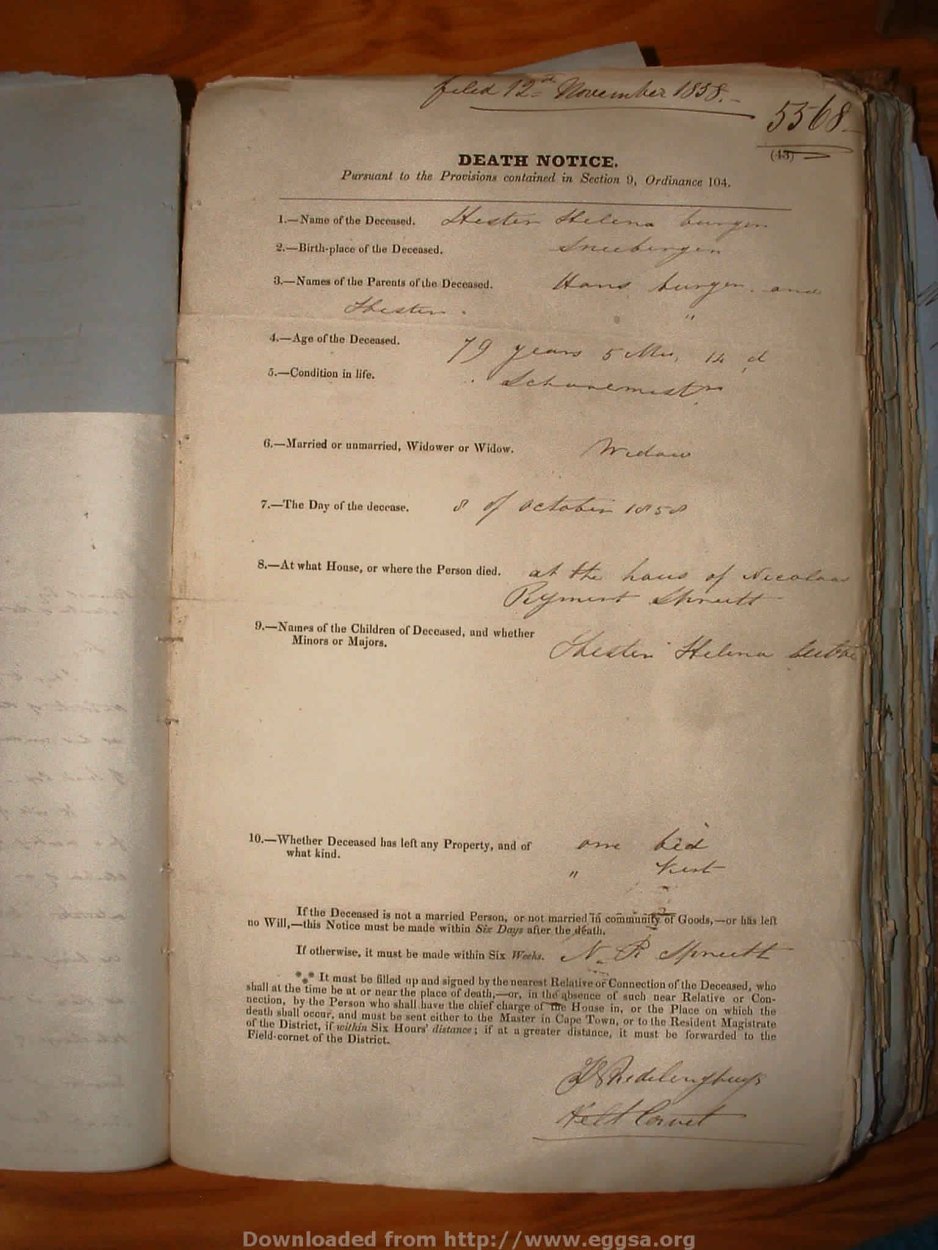 filed 12th November 1858.
5568
(43)
DEATH NOTICE.
Pursuant to the Provisions contained in Section 9, Ordinance 104.
1.—Name of the Deceased. Hester Helena burger
2.—Birth-place of the Deceased. Sneebergen
3.—Names of the Parents of the Deceased. Hans burger and
Hester "
4.—Age of the Deceased. 79 years 5 Mu, 12 d
5.—Condition in life.
6.—Married or unmarried, Widower or Widow. Widow
7.—The Day of the decease. 8 of October 1858
8.—At what House, or where the Person died. at the hous of Nicolaas
Spruitt
9.—Names of the Children of Deceased, and whether
Minors or Majors. Hester Helena
10.—Whether Deceased has left any Property, and of one bed
what kind. " Kist
If the Deceased is not a married Person, or not married in community of Goods,—or has left
no Will,—this Notice must be made within Six Days after the death.
If otherwise, it must be made within Six Weeks. N. R Spruitt
*** It must be filled up and signed by the nearest Relative or Connection of the Deceased, who
shall at the time be at or near the place of death,—or, in the absence of such near Relative or Con-
nection, by the Person who shall have the chief charge of the House in, or the Place on which the
death shall occur, and must be sent either to the Master in Cape Town, or to the Resident Magistrate
of the District, if within Six Hours' distance; if at a greater distance, it must be forwarded to the
Field-cornet of the District.
Veld Cornet
Downloaded from http://www.eggsa.org